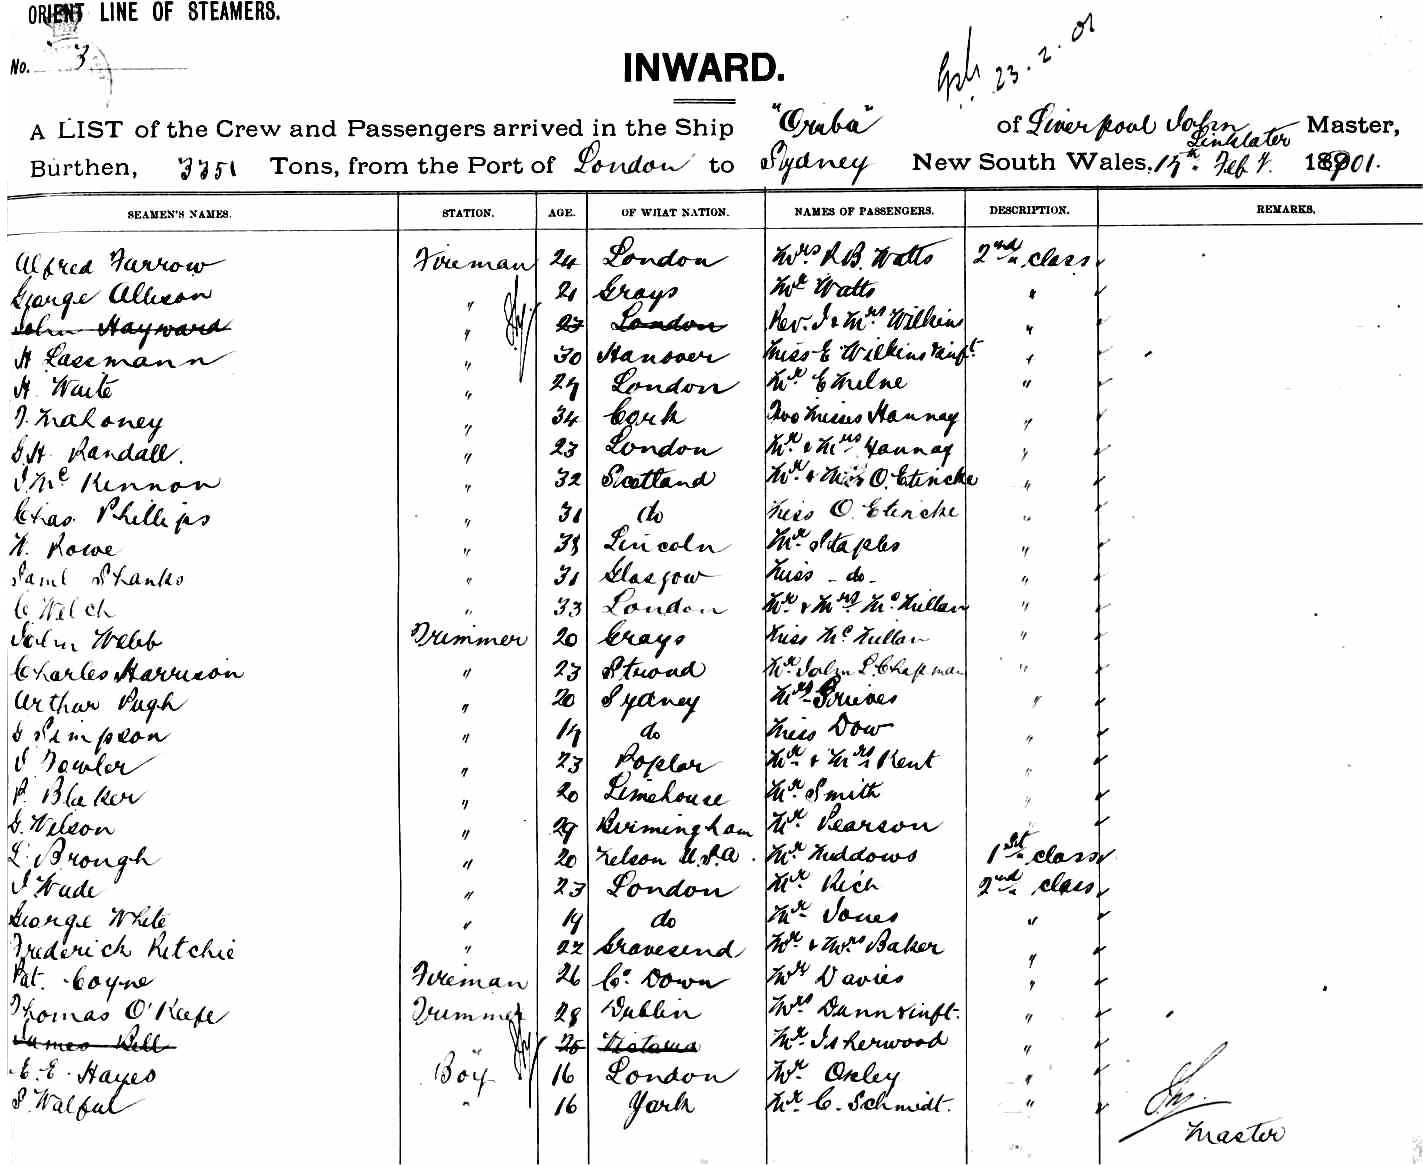 ORIENT LINE OF STEAMERS.
No. 3
INWARD.
23.2.01
A LIST of the Crew and Passengers arrived in the Ship "Oruba" of Liverpool John Linklater Master,
Burthen, 3351 Tons, from the Port of London to Sydney New South Wales, 15th Feby. 1901.
SEAMEN'S NAMES. STATION. AGE. OF WHAT NATION. NAMES OF PASSENGERS. DESCRIPTION. REMARKS.
Alfred Farrow Fireman 24 London Mrs R B. Watts 2nd class
George Allison " 21 Grays Mr Watts "
John Hayward " 23 London Rev. J & Mrs Wilkins "
H Lassmann " 30 Hanover Miss E Wilkins & inft. "
H Waite " 27 London Mr E Milne "
J. Mahoney " 34 Cork Two Misses Hannay "
G.H. Randall. " 23 London Mr & Mrs Hannay "
J McKennon " 32 Scotland Mr & O. Etincke "
Chas. Phillips " 31 do Miss O. Etincke "
W. Rowe " 38 Lincoln Mr. Staples "
Saml Shanks " 31 Glasgow Miss -do- "
C Welch " 33 London Mr & Mrs McMillan "
John Webb Trimmer 20 Grays Miss McMillan "
Charles Harrison " 23 Strood Mr. John L. Chapman "
Arthur Pugh " 20 Sydney Mrs Grieves "
G Simpson " 19 do Miss Dow "
J Fowler " 23 Poplar Mr & Mrs Kent "
P. Blaker " 20 Limehouse Mr Smith "
G. Wilson " 29 Birmingham Mr. Pearson "
L. Brough " 20 Nelson U.S.A. Mr Middows 1st class
J Wade " 23 London Mr Rich 2nd class
George White " 19 do Mr Jones "
Frederick Ritchie " 22 Gravesend Mr & Mrs Baker "
Pat. Coyne Fireman 26 Co. Down Mr Davies "
Thomas O'Keefe Trimmer 28 Dublin Mrs Dann & inft. "
James Bell " 25 Victoria Mr. Isherwood "
E. E. Hayes Boy 16 London Mr Oxley "
S Walful " 16 York Mr C. Schmidt. "
Master